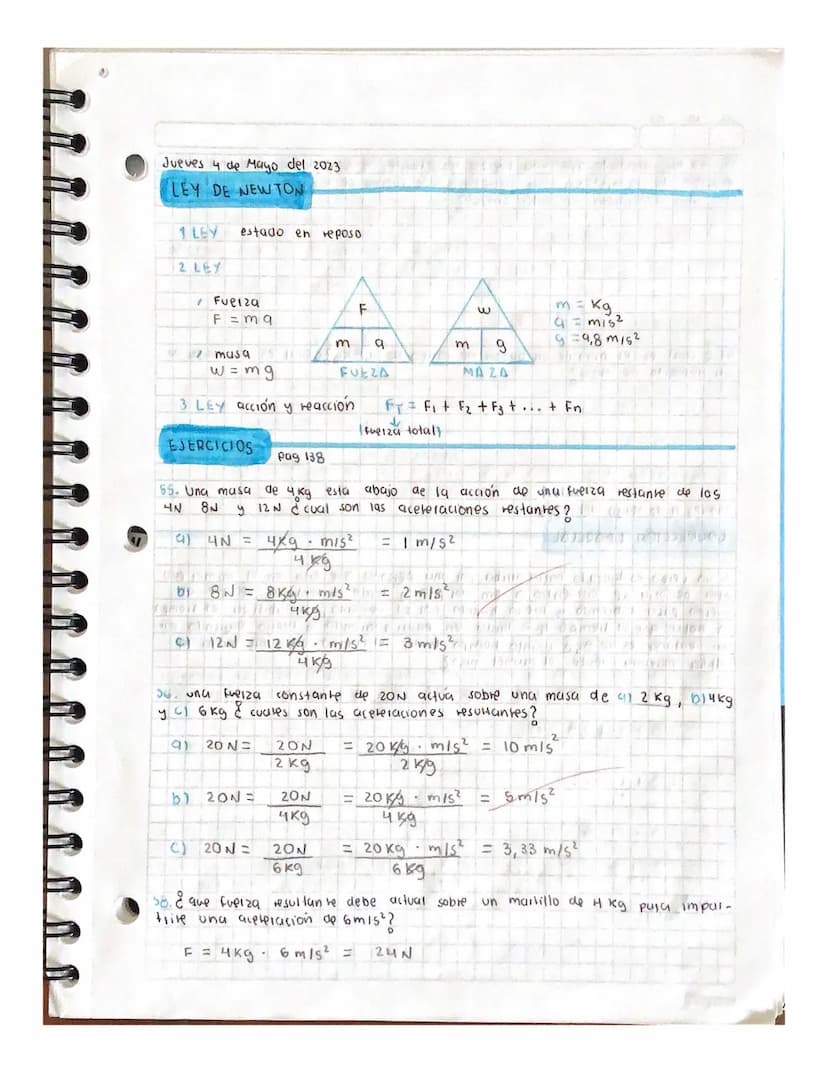 Jueves 4 de Mayo del 2023
LEY DE NEWTON
1 LEY estado en reposo
2 LEY
, Fuerza
F = m a
, masa
w = m g
F
m a
FUEZA
w
m g
MAZA
m = Kg
a = m/s²
g = 9,8 m/s²
3 LEY acción y reacción F_T = F₁ + F₂ + F₃ + ... + Fn
(fuerza total)
EJERCICIOS
pag 138
55. Una masa de 4kg esta abajo de la acción de una fuerza restante de los
4N 8N y 12N ¿cual son las aceleraciones restantes?
a) 4N = 4Kg · m/s² / 4Kg = 1 m/s²
b) 8N = 8Kg · m/s² / 4Kg = 2 m/s²
c) 12N = 12Kg · m/s² / 4Kg = 3 m/s²
56. una fuerza constante de 20N actua sobre una masa de a) 2 Kg, b) 4kg
y c) 6Kg ¿ cuales son las aceleraciones resultantes?
a) 20N = 20N / 2Kg = 20Kg · m/s² / 2Kg = 10 m/s²
b) 20N = 20N / 4Kg = 20Kg · m/s² / 4Kg = 5m/s²
c) 20N = 20N / 6Kg = 20Kg · m/s² / 6Kg = 3,33 m/s²
58. ¿ que fuerza resultante debe actual sobre un martillo de 4 Kg para impar-
tire una aceleracion de 6m/s²?
F = 4Kg · 6 m/s² = 24N